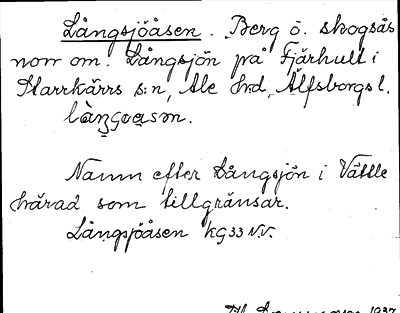 Långsjöåsen. Berg o. skogsås
norr om Långsjön på Fjärhult i
Starrkärrs s:n, Ale hd, Älfsborgs l.
Namn efter Långsjön i Vättle
härad som tillgränsar.
Långsjöåsen KG33 NV.
1937